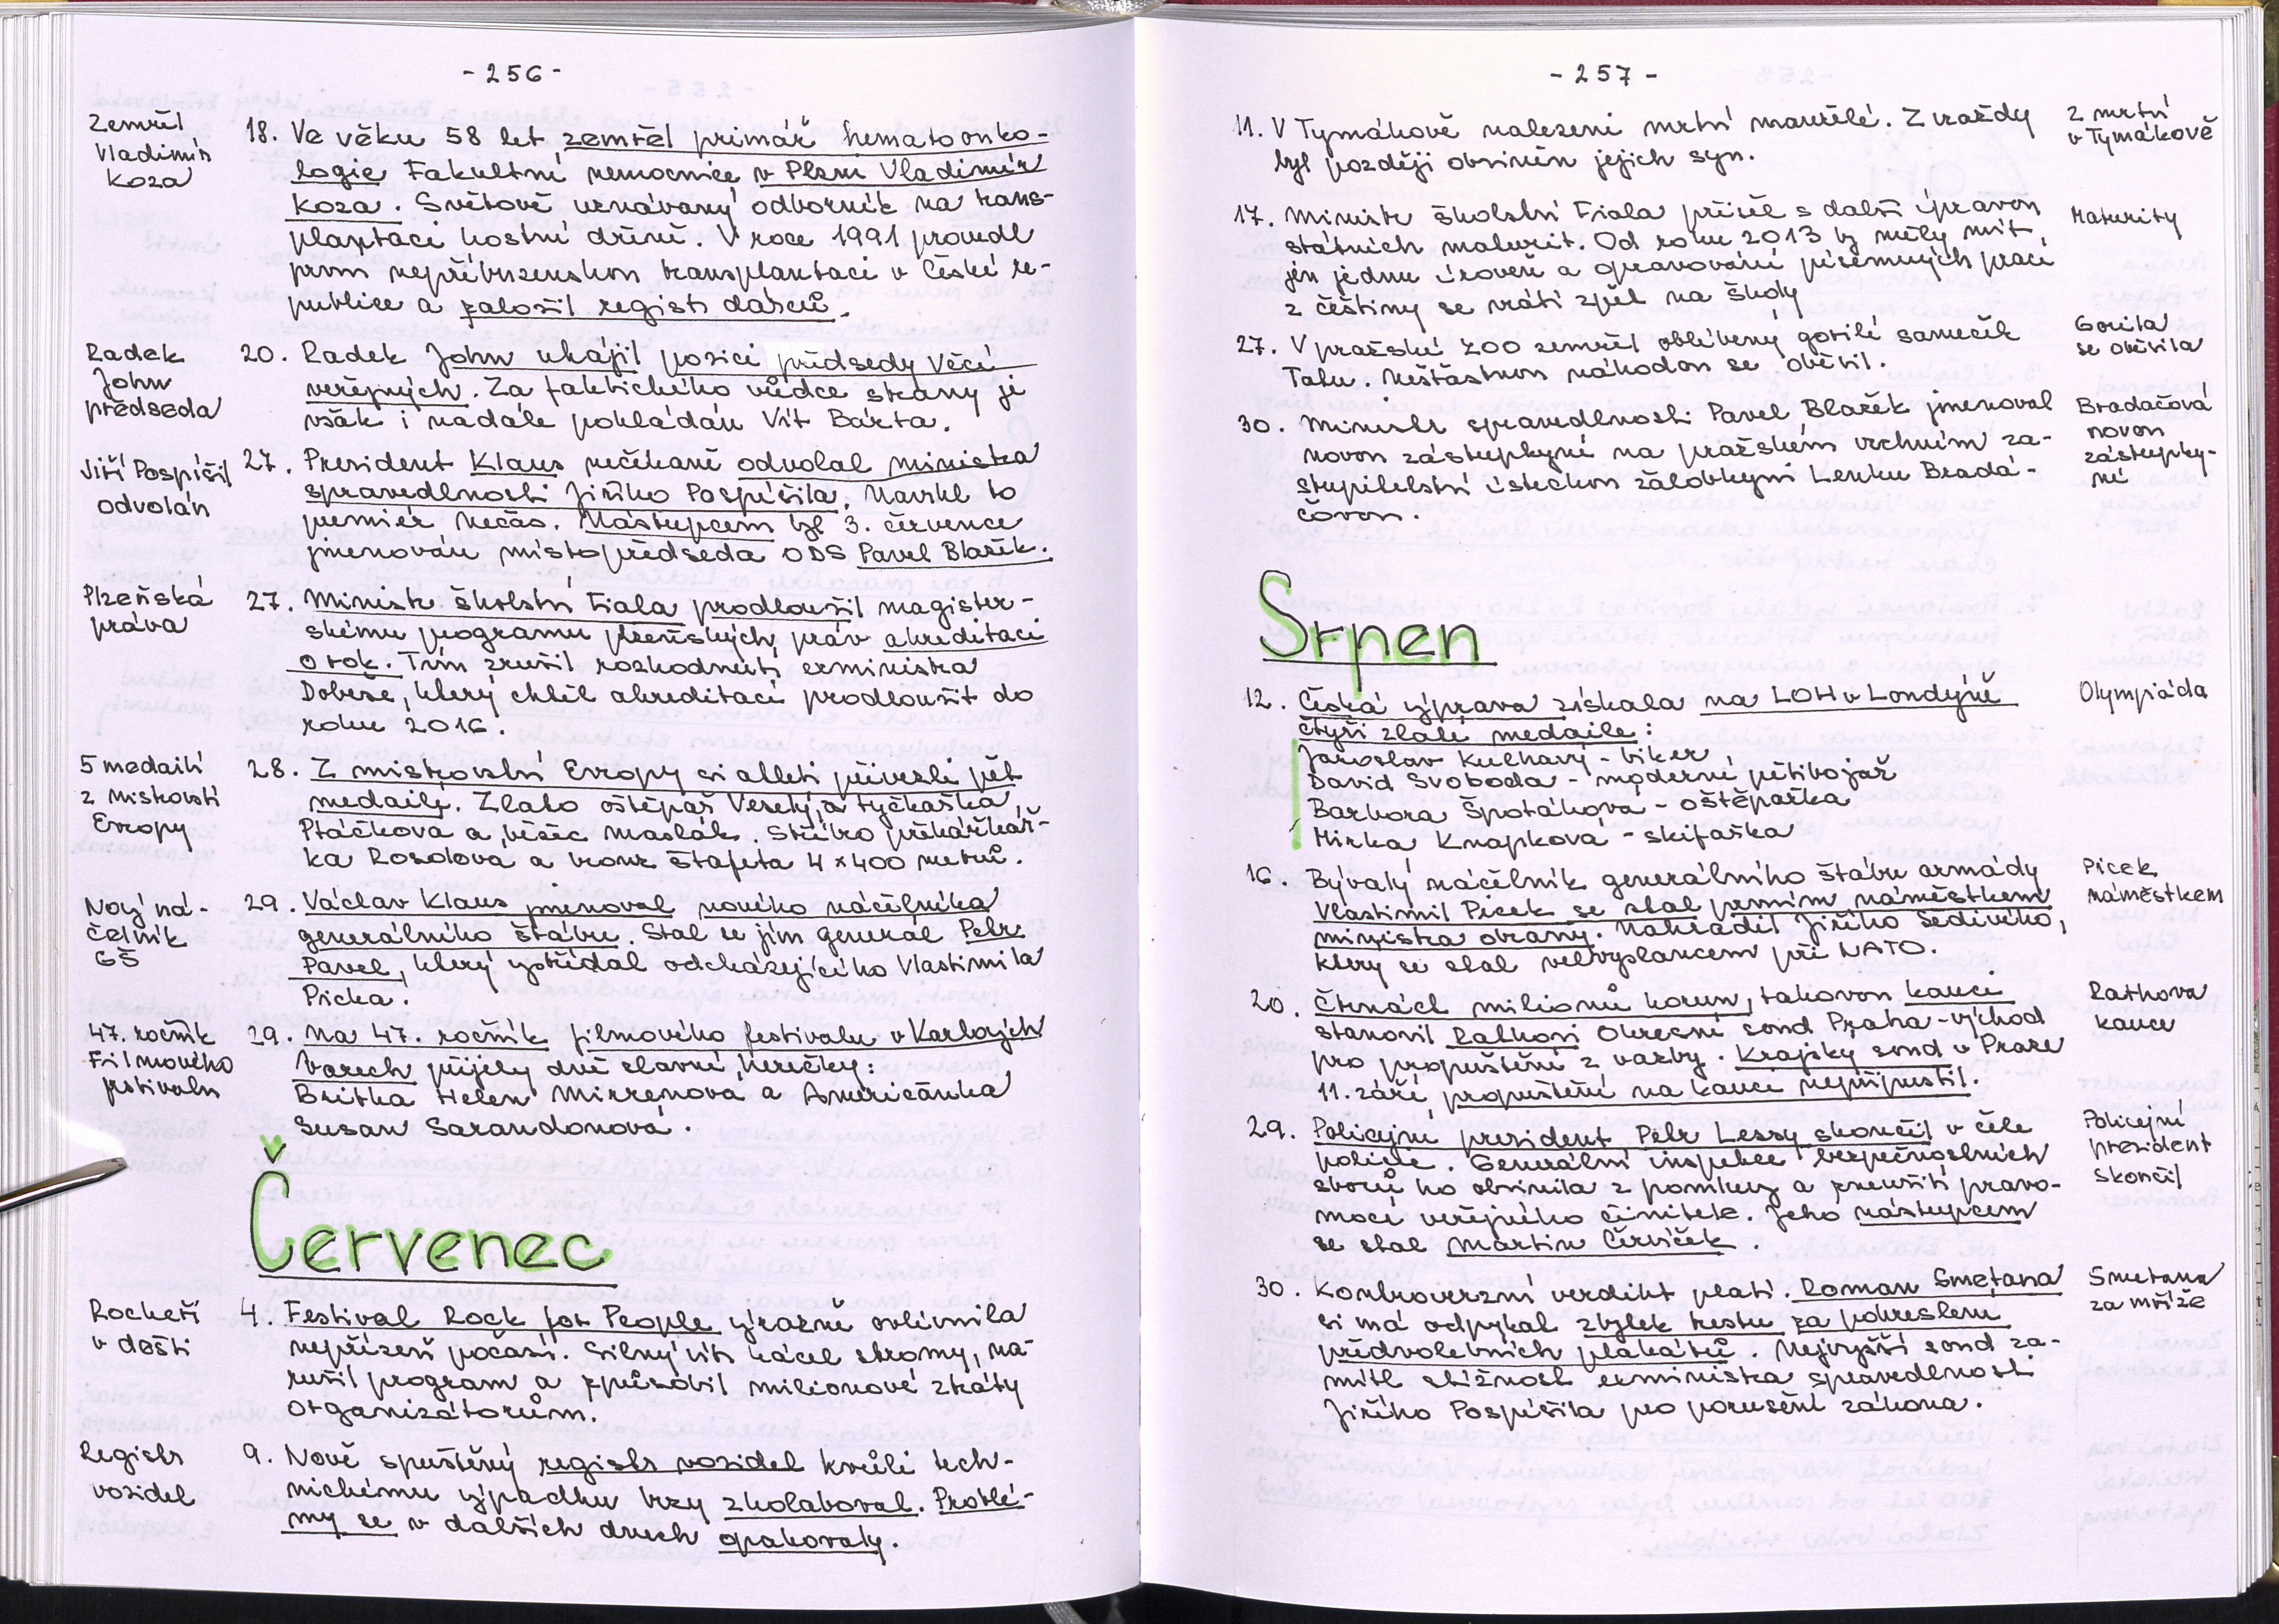 - 256 -
Zemřel
Vladimír
Koza
18. Ve věku 58 let zemřel primář hematoonko-
logie Fakultní nemocnice v Plzni Vladimír
Koza. Světově uznávaný odborník na trans-
plantaci kostní dřeně. V roce 1991 provedl
první nepříbuzenskou transplantaci v České re-
publice a založil registr dárců.
Radek
John
předseda
20. Radek John uhájil pozici předsedy Věcí
veřejných. Za faktického vůdce strany je
však i nadále pokládán Vít Bárta.
Jiří Pospíšil
odvolán
27. Prezident Klaus nečekaně odvolal ministra
spravedlnosti Jiřího Pospíšila. Navrhl to
premiér Nečas. Nástupcem byl 3. července
jmenován místopředseda ODS Pavel Blažek.
Plzeňská
práva
27. Ministr školství Fiala prodloužil magister-
skému programu plzeňských práv akreditaci
o rok. Tím zrušil rozhodnutí exministra
Dobeše, který chtěl akreditaci prodloužit do
roku 2016.
5 medailí
z mistrovství
Evropy
28. Z mistrovství Evropy si atleti přivezli pět
medailí. Zlato oštěpař Veselý, a tyčkařka
Ptáčníková a běžec Maslák. Stříbro překážkář-
ka Rosolová a bronz štafeta 4×400 metrů.
Nový ná-
čelník
GŠ
29. Václav Klaus jmenoval nového náčelníka
generálního štábu. Stal se jím generál Petr
Pavel, který vystřídal odcházejícího Vlastimila
Picka.
47. ročník
Filmového
festivalu
29. Na 47. ročník filmového festivalu v Karlových
Varech přijely dvě slavné herečky:
Britka Helen Mirrenová a Američanka
Susan Sarandonová.
Červenec
Rockeři
v dešti
4. Festival Rock for People výrazně ovlivnila
nepřízeň počasí. Silný vítr kácel stromy, na-
rušil program a způsobil milionové ztráty
organizátorům.
Registr
vozidel
9. Nově spuštěný registr vozidel kvůli tech-
nickému výpadku brzy zkolaboval. Problé-
my se v dalších dnech opakovaly.
- 257 -
11. V Tymákově nalezeni mrtví manželé. Z vraždy
byl později obviněn jejich syn.
2 mrtví
v Tymákově
17. Ministr školství Fiala přišel s další úpravou
státních maturit. Od roku 2013 by měly mít
jen jednu úroveň a opravování písemných prací
z češtiny se vrátí zpět na školy
Maturity
27. V pražské ZOO zemřel oblíbený gorilí sameček
Tatu. Nešťastnou náhodou se oběsil.
Gorila
se oběsila
30. Ministr spravedlnosti Pavel Blažek jmenoval
novou zástupkyní na pražském vrchním za-
stupitelství ústeckou žalobkyni Lenku Bradá-
čovou.
Bradáčová
novou
zástupky-
ní
Srpen
12. Česká výprava získala na LOH v Londýně
čtyři zlaté medaile:
Jaroslav Kulhavý - biker
David Svoboda - moderní pětibojař
Barbora Špotáková - oštěpařka
Mirka Knapková - skifařka
Olympiáda
16. Bývalý náčelník generálního štábu armády
Vlastimil Picek se stal prvním náměstkem
ministra obrany. Nahradil Jiřího Šedivého,
který se stal velvyslancem při NATO.
Picek
náměstkem
20. Čtrnáct milionů korun, takovou kauci
stanovil Rathovi Okresní soud Praha-východ
pro propuštění z vazby. Krajský soud v Praze
11. září propuštění na kauci nepřipustil.
Rathova
kauce
29. Policejní prezident Petr Lessy skončil v čele
policie. Generální inspekce bezpečnostních
sborů ho obvinila z pomluvy a zneužití pravo-
moci veřejného činitele. Jeho nástupcem
se stal Martin Červíček.
Policejní
prezident
skončil
30. Kontroverzní verdikt platí. Roman Smetana
si má odpykat zbytek trestu za pokreslení
předvolebních plakátů. Nejvyšší soud za-
mítl stížnost exministra spravedlnosti
Jiřího Pospíšila pro porušení zákona.
Smetana
za mříže